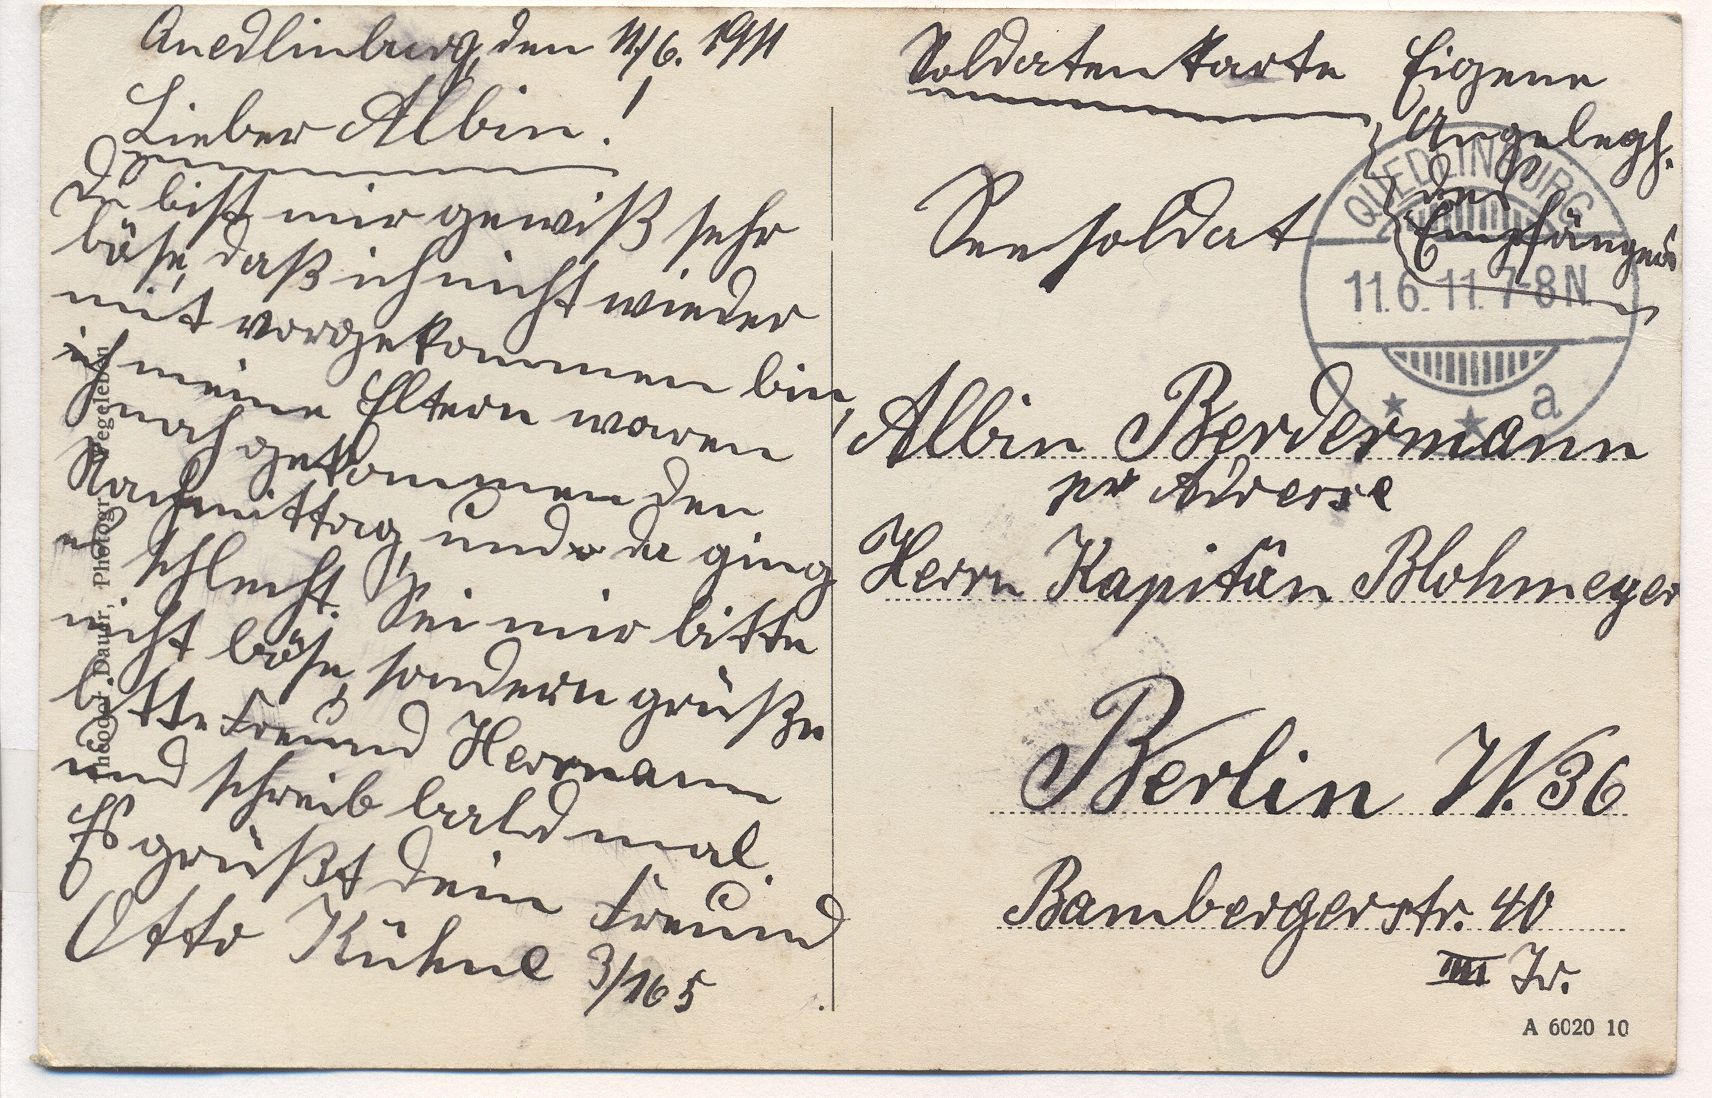 Quedlinburg, den 11/6. 1911
Lieber Albin!
Du bist mir gewiß sehr
böse, daß ich nicht wieder
mit vorgekommen bin,
ich meine Eltern waren
nachgekommen den
Nachmittag, und da ging
es schlecht. Sei mir bitte
nicht böse, sondern grüße
bitte Freund Herrmann
und schreib bald mal.
Es grüßt dein Freund
Otto Kühne 3/165
Theodor Dauer, Photogr. Wegeleben
Soldatenkarte
Eigene
Angelegh.
des
Empfängers
QUEDLINBURG
11.6.11.7-8N.
a
Seesoldat
Albin Berdermann
pr Adresse
Herrn Kapitän Blohmeyer
Berlin W. 36
Bambergerstr. 40
III Tr.
A 6020 10